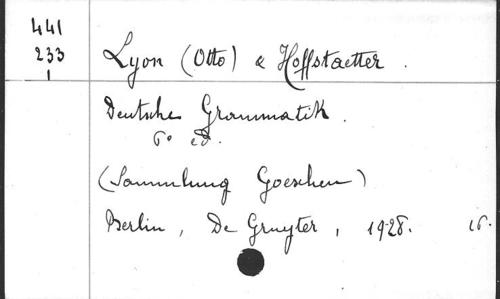 441
233
1
Lyon (Otto) & Hoffstaetter.
Deutsche Grammatik.
6° ed.
(Sammlung Goeschen)
Berlin, De Gruyter, 1928. 16.